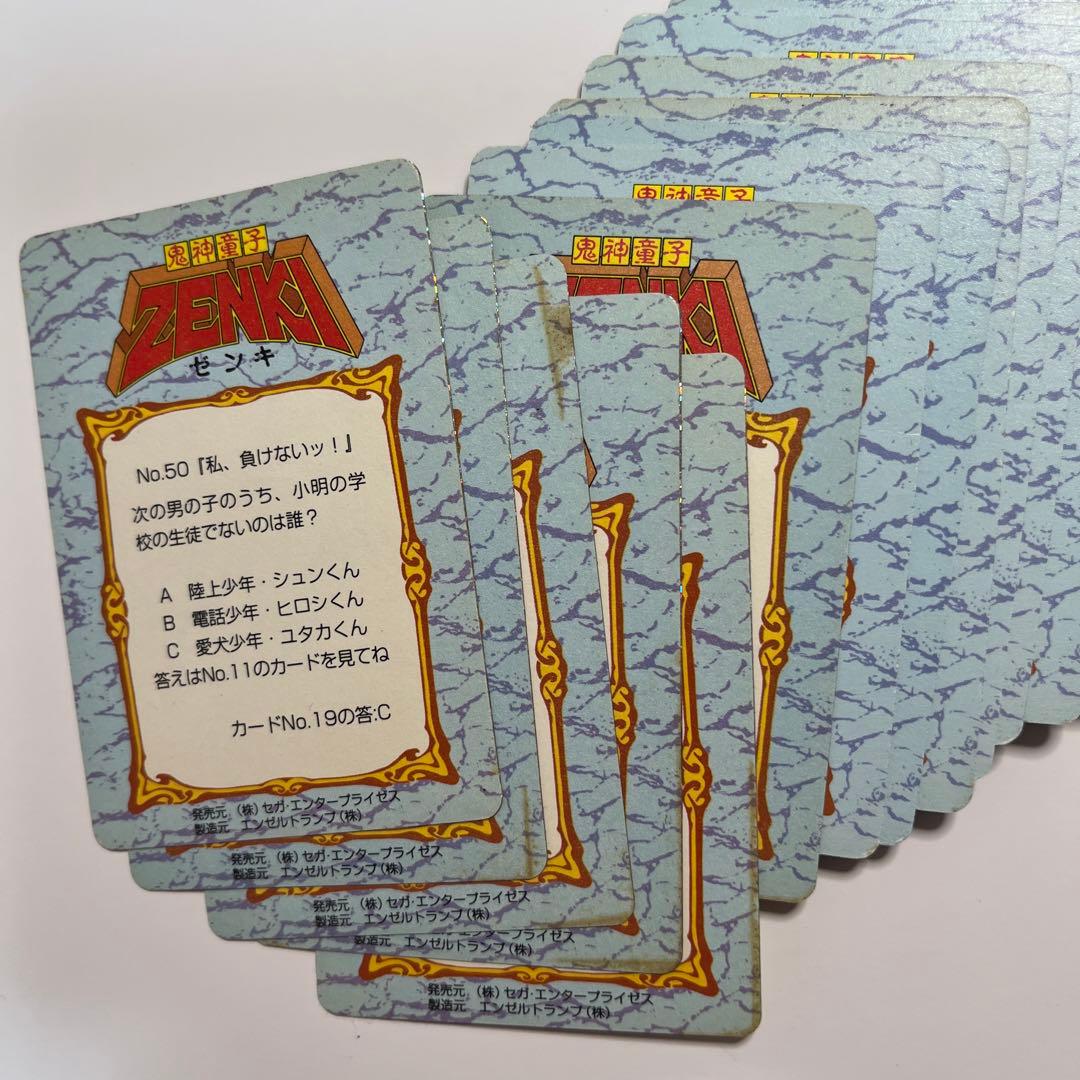 鬼神童子
ZENKI
ゼンキ
No.50『私、負けないッ!』
次の男の子のうち、小明の学
校の生徒でないのは誰?
A 陸上少年・シュンくん
B 電話少年・ヒロシくん
C 愛犬少年・ユタカくん
答えはNo.11のカードを見てね
カードNo.19の答:C
発売元 (株)セガ・エンタープライゼス
製造元 エンゼルトランプ(株)
発売元 (株)セガ・エンタープライゼス
製造元 エンゼルトランプ(株)
発売元 (株)セガ・エンタープライゼス
製造元 エンゼルトランプ(株)
エンタープライゼス
製造元 エンゼルトランプ(株)
発売元 (株)セガ・エンタープライゼス
製造元 エンゼルトランプ(株)
鬼神童子
ENKI
鬼神童子